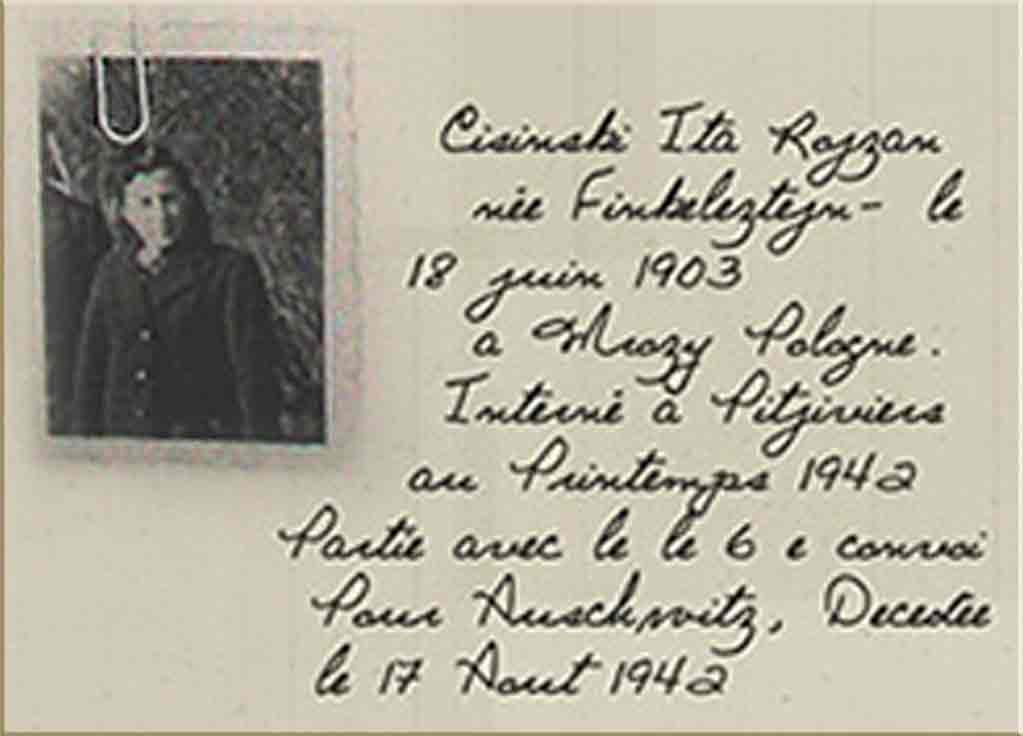 Cisinski Ita Rojzan
née Finkeleztejn- le
18 juin 1903
a Mrozy Pologne.
Interné a Pitjiviers
au Printemps 1942
Partie avec le le 6 e convoi
Pour Auschwitz, Decedee
le 17 Aout 1942